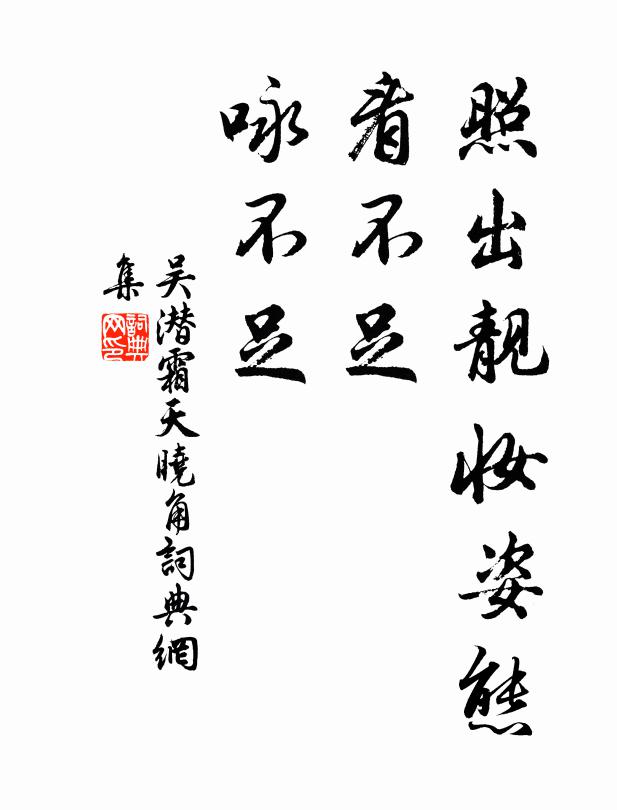 照出靚妝姿態
看不足
咏不足
吴潜霜天曉角詞典網
集
詞典
网印